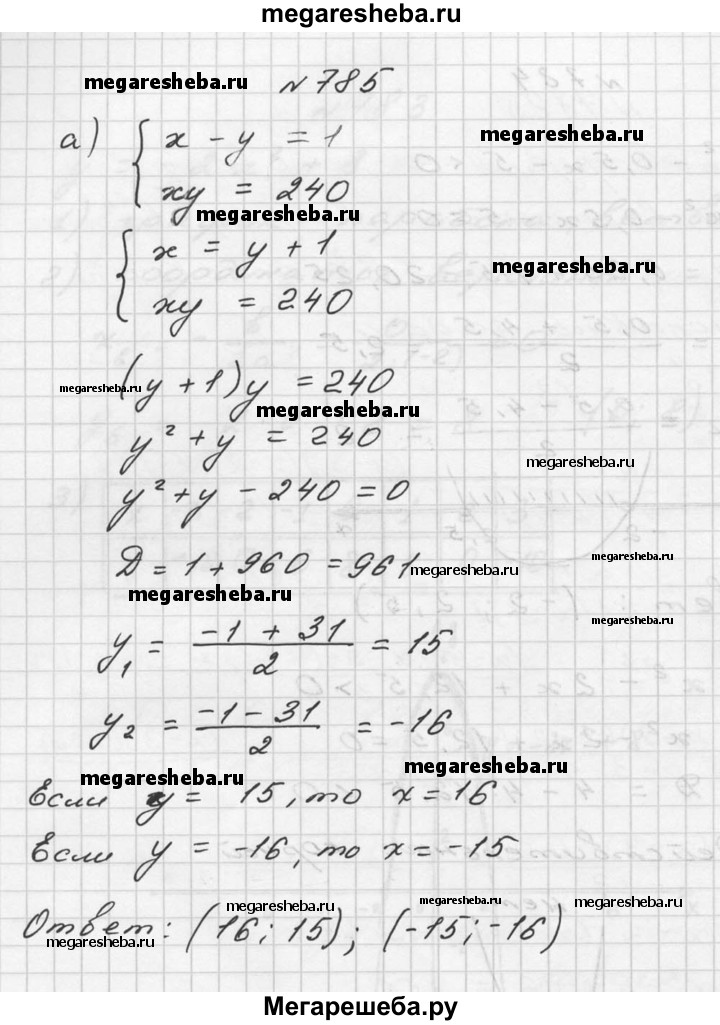 megaresheba.ru
megaresheba.ru № 785
а) { x - y = 1 megaresheba.ru
xy = 240
megaresheba.ru
{ x = y + 1
megaresheba.ru
xy = 240
megaresheba.ru (y + 1)y = 240
megaresheba.ru
y² + y = 240
megaresheba.ru
y² + y - 240 = 0
D = 1 + 960 = 961 megaresheba.ru
megaresheba.ru
megaresheba.ru
megaresheba.ru
y₁ = (-1 + 31)/2 = 15
y₂ = (-1 - 31)/2 = -16
megaresheba.ru megaresheba.ru
Если y = 15, то x = 16
Если y = -16, то x = -15
megaresheba.ru megaresheba.ru megaresheba.ru
Ответ: (16; 15); (-15; -16)
megaresheba.ru
Мегарешеба.ру